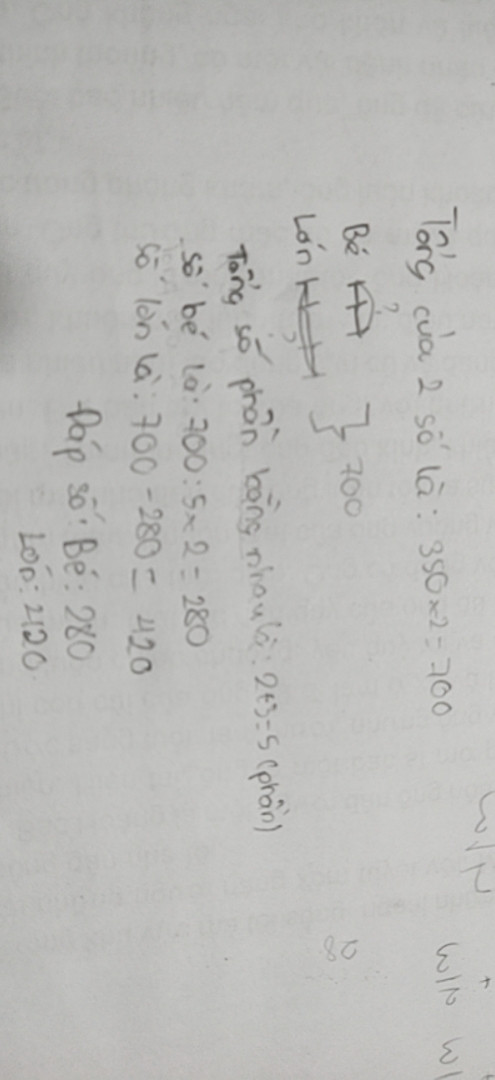 Tổng của 2 số là: 350×2=700
Bé ?
Lớn ? } 700
Tổng số phần bằng nhau là: 2+3=5 (phần)
Số bé là: 700:5×2=280
Số lớn là: 700-280=420
Đáp số: Bé: 280
Lớn: 420
28